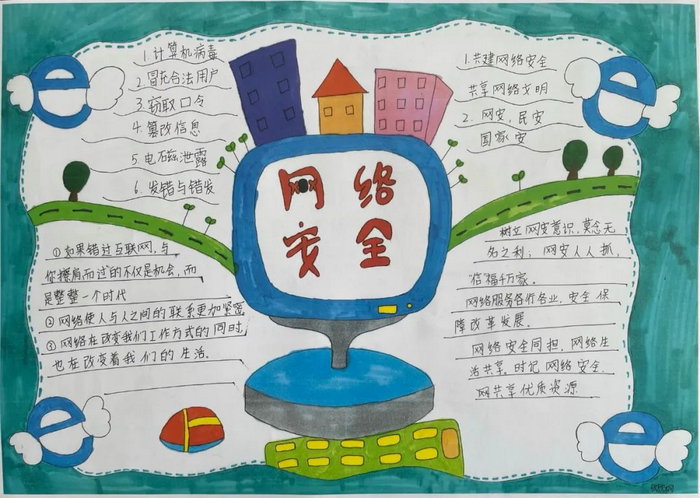 1. 计算机病毒
2. 冒充合法用户
3. 窃取口令
4. 篡改信息
5 电磁泄露
6. 发错与错发
1. 共建网络安全
共享网络文明
2. 网安, 民安
国家安
网络
安全
①如果错过互联网,与
你擦肩而过的不仅是机会,而
是整整一个时代
②网络使人与人之间的联系更加紧密
③网络在改变我们工作方式的同时,
也在改变着我们的生活.
树立网安意识,莫念无
名之利; 网安人人抓,
信福千万家.
网络服务各行各业,安全保
障改革发展.
网络安全同担,网络生
活共享,时记网络安全.
网共享优质资源